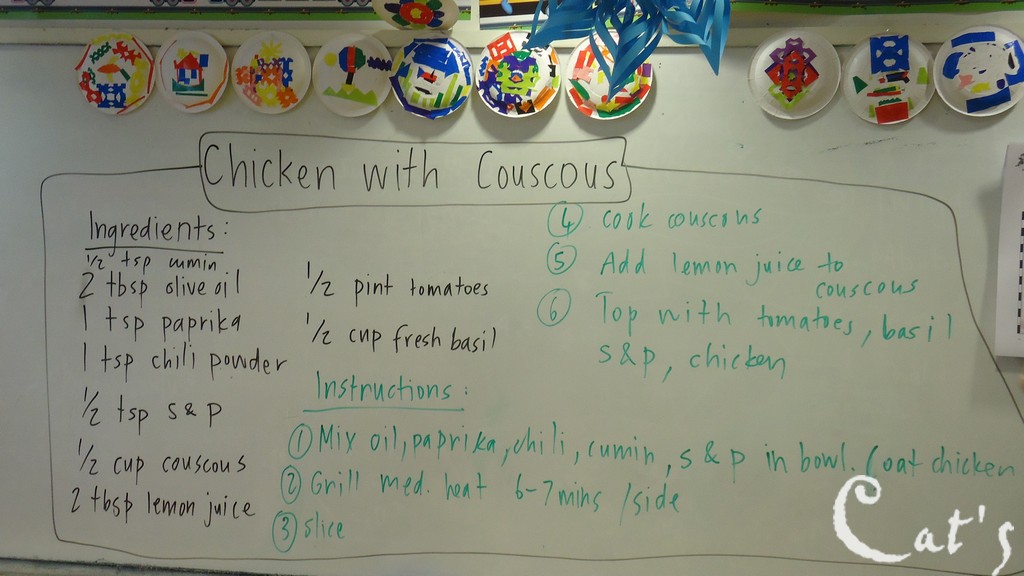 Chicken with Couscous
Ingredients:
1/2 tsp cumin
2 tbsp olive oil
1 tsp paprika
1 tsp chili powder
1/2 tsp s & p
1/2 cup couscous
2 tbsp lemon juice
1/2 pint tomatoes
1/2 cup fresh basil
Instructions:
① Mix oil, paprika, chili, cumin, s & p in bowl. Coat chicken
② Grill med. heat 6-7 mins /side
③ slice
④ cook couscous
⑤ Add lemon juice to
couscous
⑥ Top with tomatoes, basil
s & p, chicken
Cat's